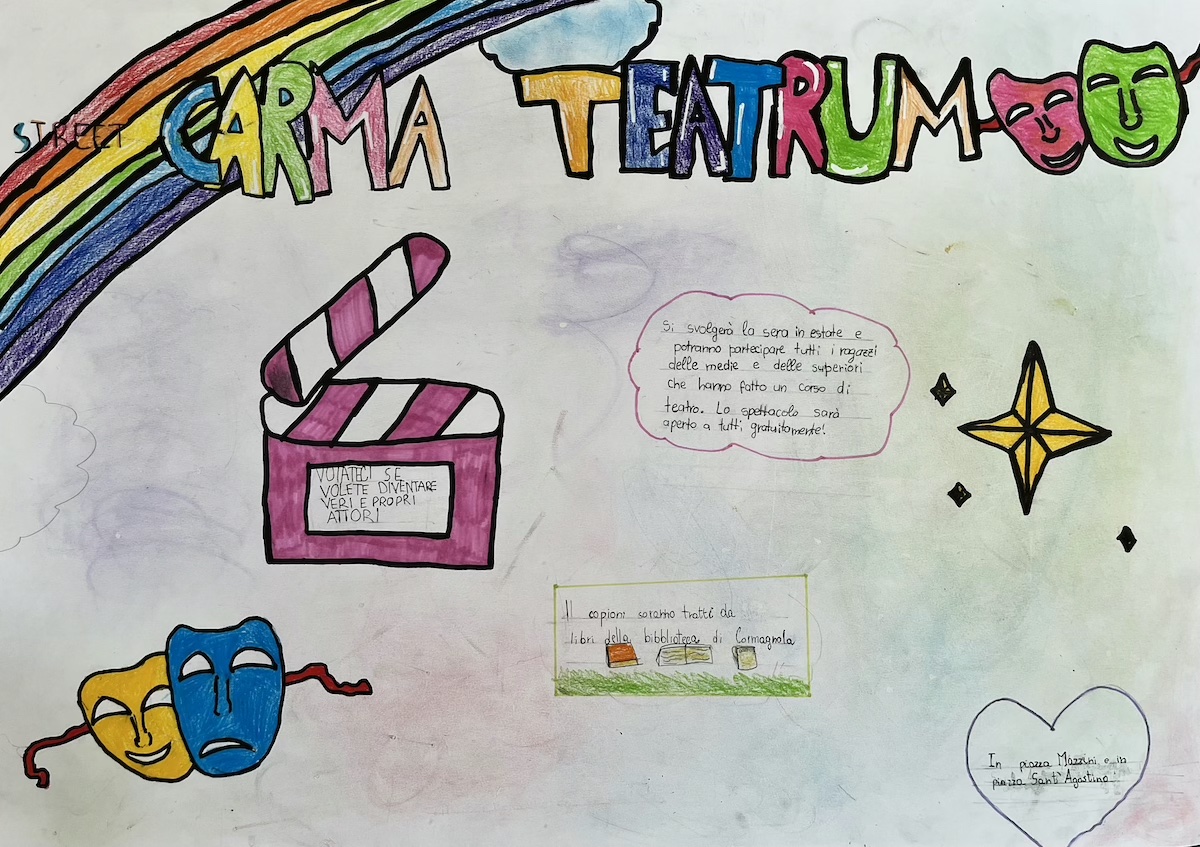 STREET CARMA TEATRUM
Si svolgerà la sera in estate e
potranno partecipare tutti i ragazzi
delle medie e delle superiori
che hanno fatto un corso di
teatro. Lo spettacolo sarà
aperto a tutti gratuitamente!
VOTATECI SE
VOLETE DIVENTARE
VERI E PROPRI
ATTORI
Il copioni saranno tratti da
libri della bibblioteca di Carmagnola
In piazza Mazzini e in
piazza Sant'Agostino